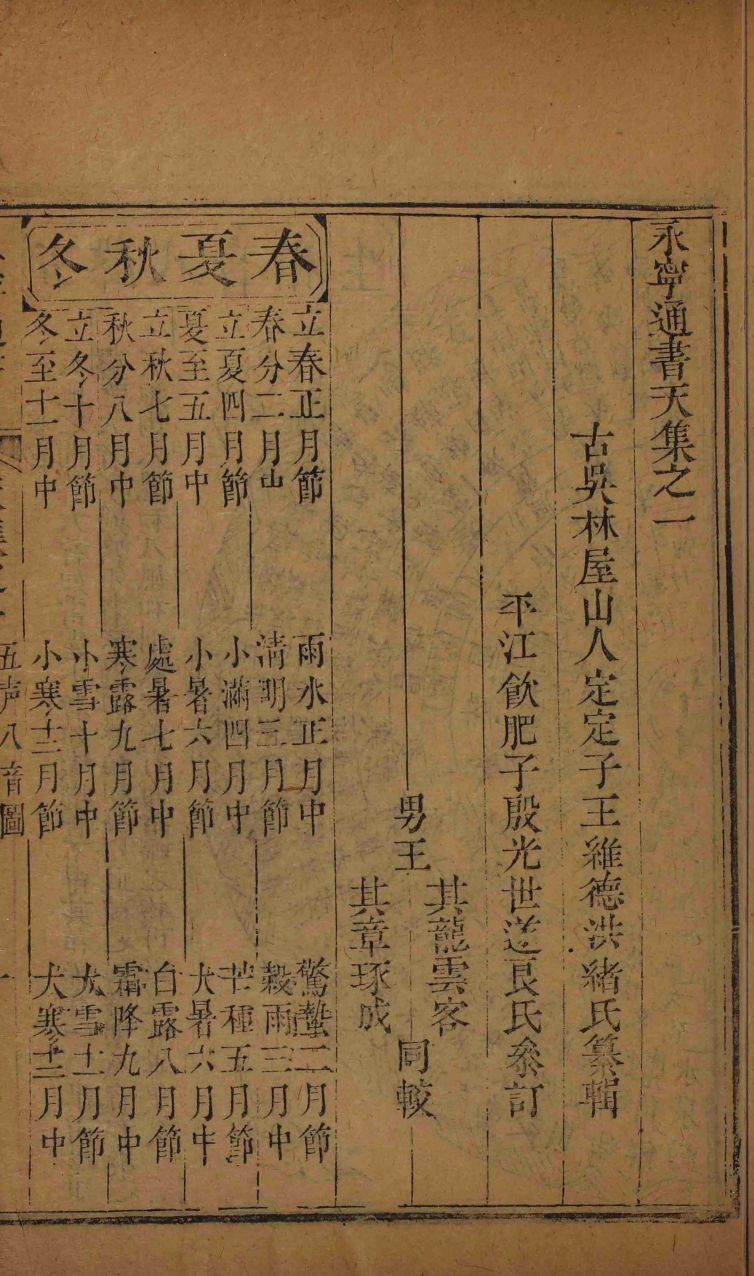 永寧通書天集之一
古吳林屋山人定定子王維德洪緒氏纂輯
平江飲肥子殷光世送良氏叅訂
男王
其龍雲客
其章琢成
同較
春夏秋冬
立春正月節 雨水正月中 驚蟄二月節
春分二月中 淸明三月節 穀雨三月中
立夏四月節 小滿四月中 芒種五月節
夏至五月中 小暑六月節 大暑六月中
立秋七月節 處暑七月中 白露八月節
秋分八月中 寒露九月節 霜降九月中
立冬十月節 小雪十月中 大雪十一月節
冬至十一月中 小寒十二月節 大寒十二月中
五声八音圖
一